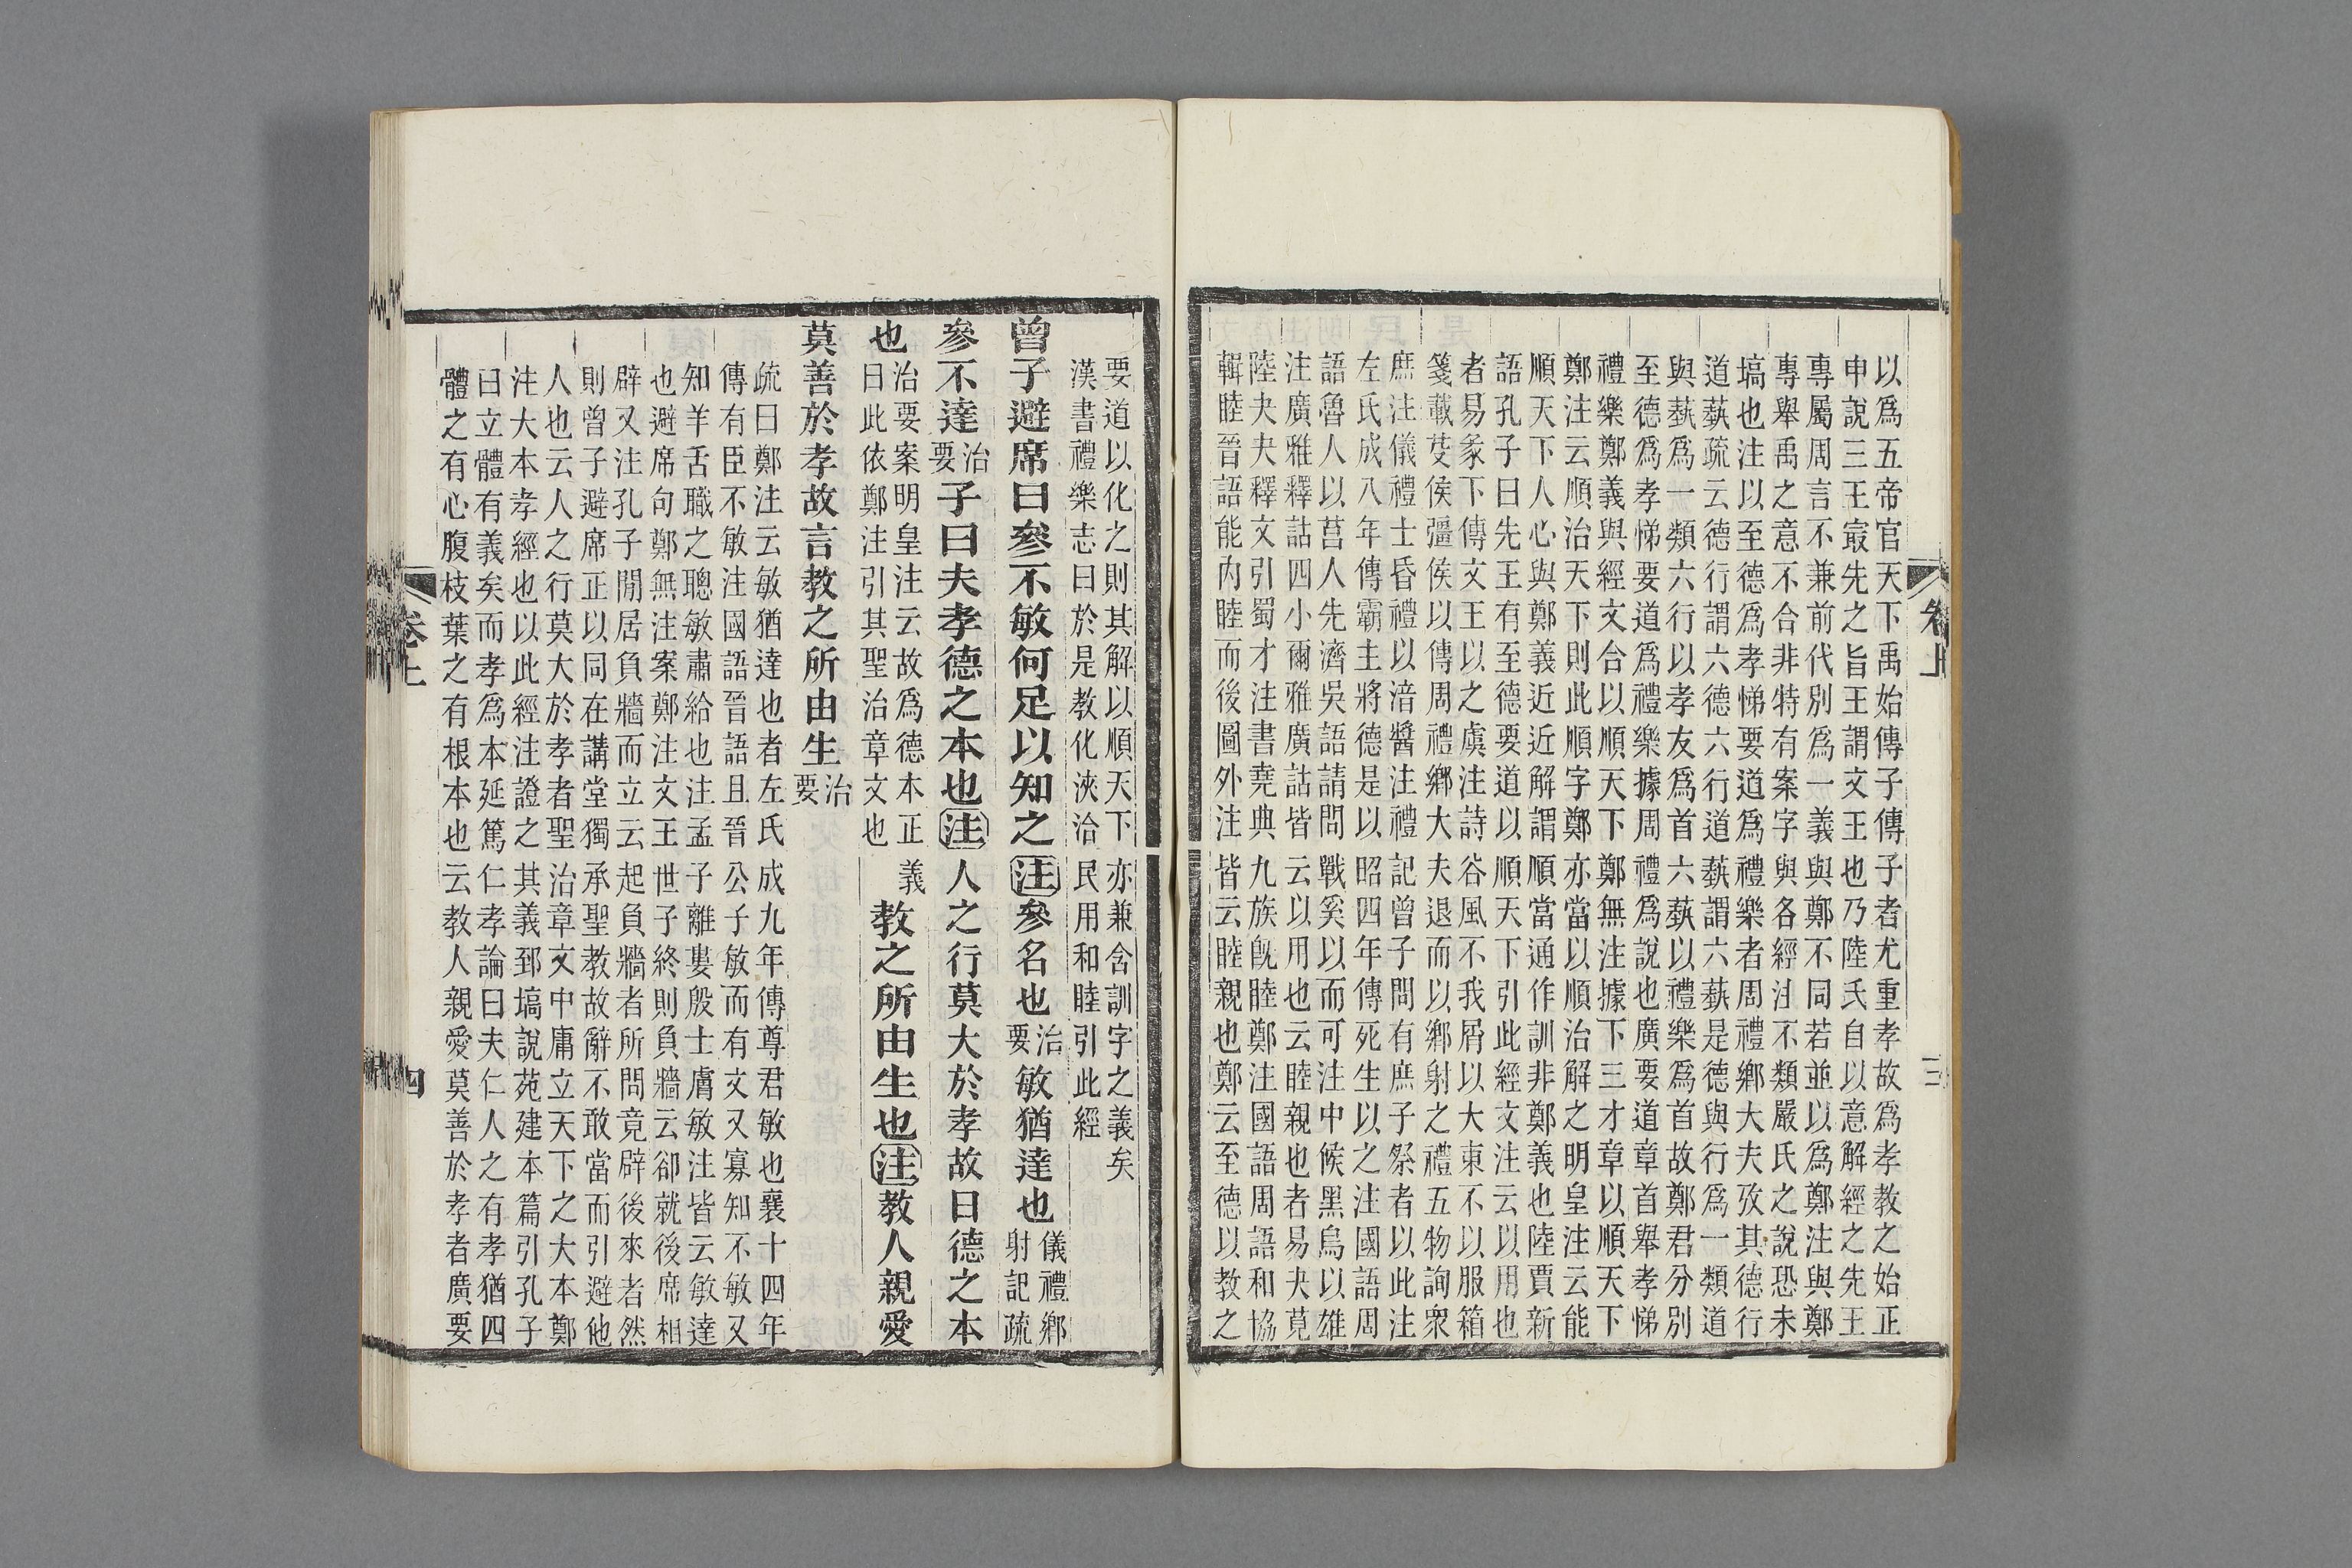 以爲五帝官天下禹始傳子傳子者尤重孝故爲孝教之始正
申說三王㝡先之旨王謂文王也乃陸氏自以意解經之先王
專屬周言不兼前代別爲一義與鄭不同若並以爲鄭注與鄭
專舉禹之意不合非特有案字與各經注不類嚴氏之說恐未
塙也注以至德爲孝悌要道爲禮樂者周禮鄉大夫攷其德行
道蓺疏云德行謂六德六行道蓺謂六蓺是德與行爲一類道
與蓺爲一類六行以孝友爲首六蓺以禮樂爲首故鄭君分別
至德爲孝悌要道爲禮樂據周禮爲說也廣要道章首舉孝悌
禮樂鄭義與經文合以順天下鄭無注據下三才章以順天下
鄭注云順治天下則此順字鄭亦當以順治解之明皇注云能
順天下人心與鄭義近近解謂順當通作訓非鄭義也陸賈新
語孔子曰先王有至德要道以順天下引此經文注云以用也
者易彖下傳文王以之虞注詩谷風不我屑以大東不以服箱
箋載芟侯彊侯以傳周禮鄉大夫退而以鄉射之禮五物詢衆
庶注儀禮士昏禮以湆醬注禮記曾子問有庶子祭者以此注
左氏成八年傳霸主將德是以昭四年傳死生以之注國語周
語魯人以莒人先濟吳語請問戰奚以而可注中候黑鳥以雄
注廣雅釋詁四小爾雅廣詁皆云以用也云睦親也者易夬莧
陸夬夬釋文引蜀才注書堯典九族旣睦鄭注國語周語和協
輯睦晉語能內睦而後圖外注皆云睦親也鄭云至德以教之
卷上
三
要道以化之則其解以順天下亦兼含訓字之義矣
漢書禮樂志曰於是教化浹洽民用和睦引此經
曾子避席曰參不敏何足以知之注參名也治要敏猶達也儀禮鄉射記疏
參不達治要子曰夫孝德之本也注人之行莫大於孝故曰德之本
也治要案明皇注云故爲德本正義曰此依鄭注引其聖治章文也教之所由生也注教人親愛
莫善於孝故言教之所由生治要
疏曰鄭注云敏猶達也者左氏成九年傳尊君敏也襄十四年
傳有臣不敏注國語晉語且晉公子敏而有文又寡知不敏又
知羊舌職之聰敏肅給也注孟子離婁殷士膚敏注皆云敏達
也避席句鄭無注案鄭注文王世子終則負牆云卻就後席相
辟又注孔子閒居負牆而立云起負牆者所問竟辟後來者然
則曾子避席正以同在講堂獨承聖教故辭不敢當而引避他
人也云人之行莫大於孝者聖治章文中庸立天下之大本鄭
注大本孝經也以此經注證之其義郅塙說苑建本篇引孔子
曰立體有義矣而孝爲本延篤仁孝論曰夫仁人之有孝猶四
體之有心腹枝葉之有根本也云教人親愛莫善於孝者廣要
卷上
四